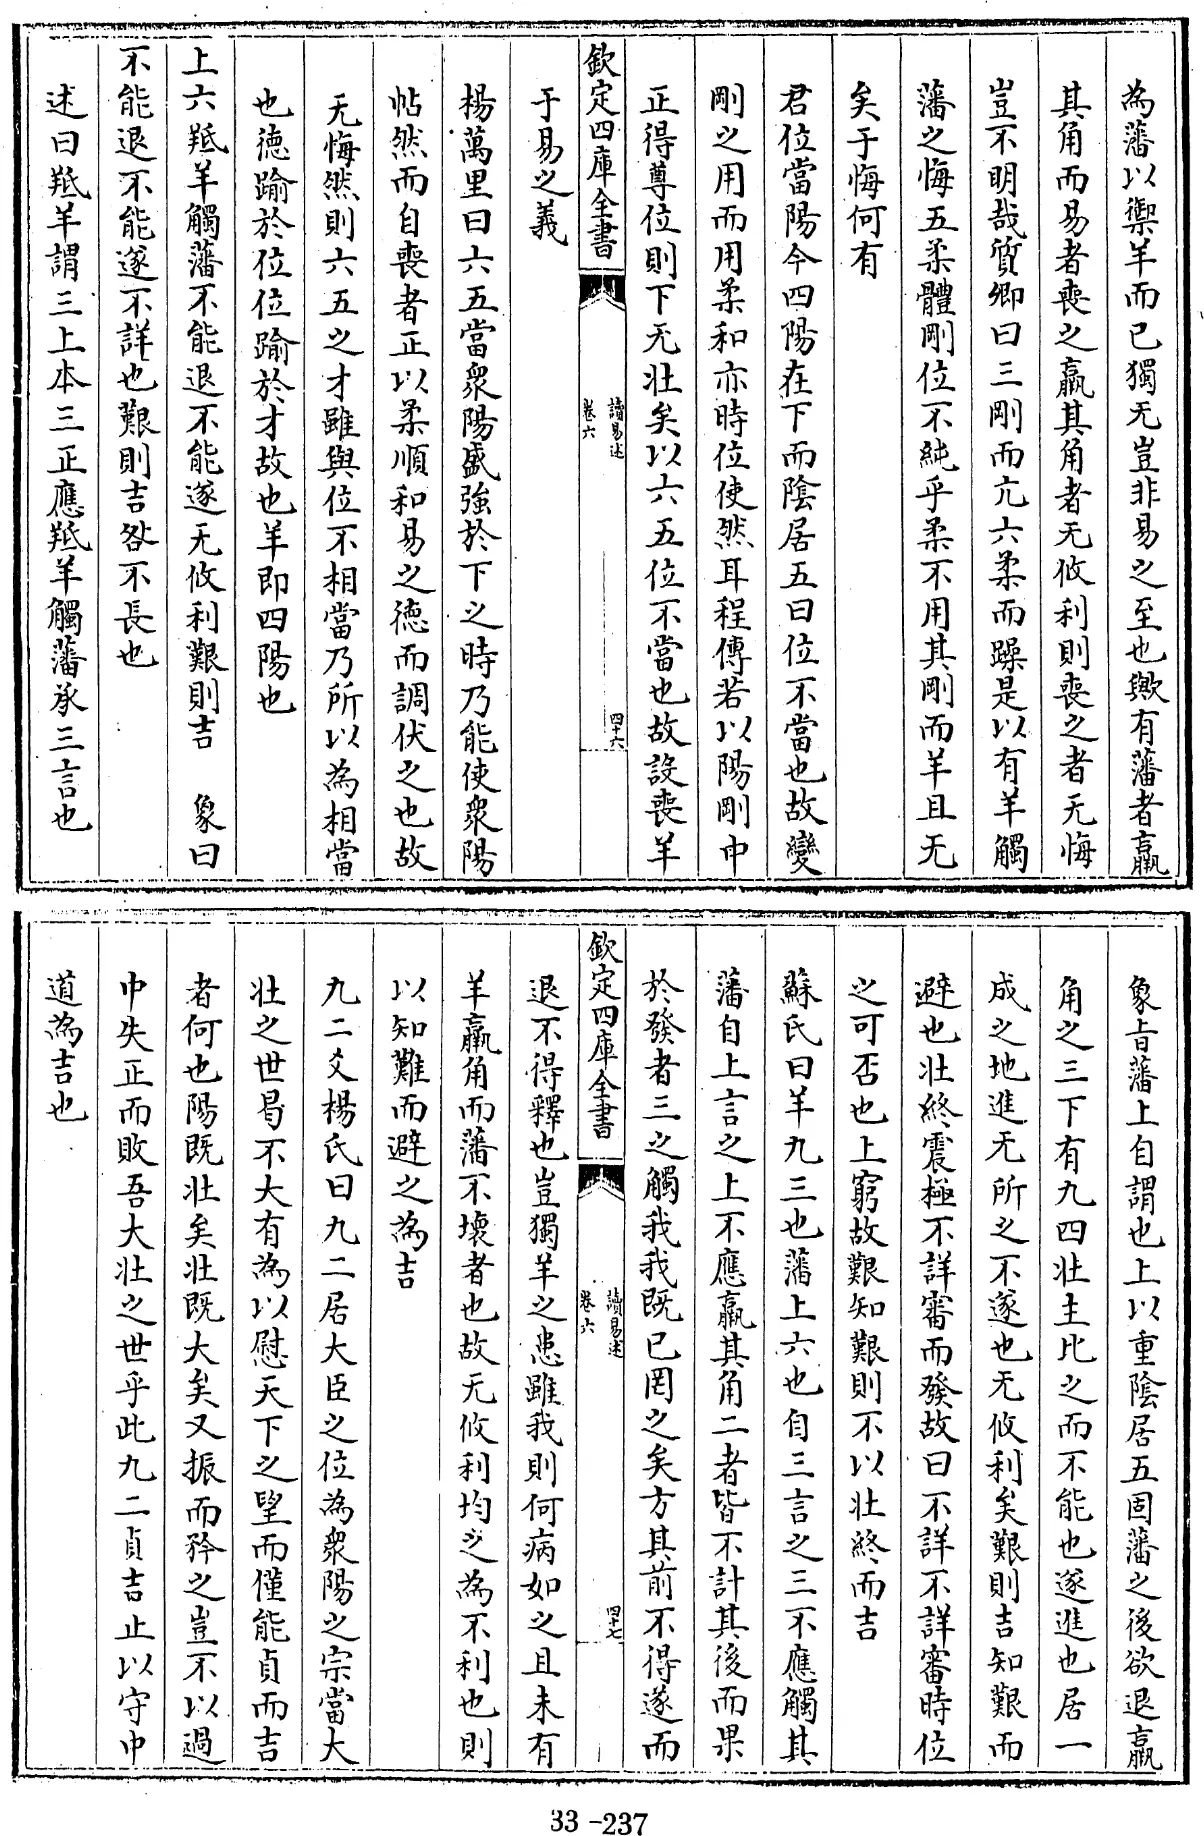 為藩以禦羊而已獨无豈非易之至也歟有藩者羸
其角而易者喪之羸其角者无攸利則喪之者无悔
豈不明哉質卿曰三剛而亢六柔而躁是以有羊觸
藩之悔五柔體剛位不純乎柔不用其剛而羊且无
矣于悔何有
君位當陽今四陽在下而陰居五曰位不當也故變
剛之用而用柔和亦時位使然耳程傳若以陽剛中
正得尊位則下无壯矣以六五位不當也故設喪羊
欽定四庫全書
讀易述
卷六
四十六
于易之義
楊萬里曰六五當衆陽盛強於下之時乃能使衆陽
帖然而自喪者正以柔順和易之德而調伏之也故
无悔然則六五之才雖與位不相當乃所以為相當
也德踰於位位踰於才故也羊即四陽也
上六羝羊觸藩不能退不能遂无攸利艱則吉 象曰
不能退不能遂不詳也艱則吉咎不長也
述曰羝羊謂三上本三正應羝羊觸藩承三言也
象旨藩上自謂也上以重陰居五固藩之後欲退羸
角之三下有九四壯主比之而不能也遂進也居一
成之地進无所之不遂也无攸利矣艱則吉知艱而
避也壯終震極不詳審而發故曰不詳不詳審時位
之可否也上窮故艱知艱則不以壯終而吉
蘇氏曰羊九三也藩上六也自三言之三不應觸其
藩自上言之上不應羸其角二者皆不計其後而果
於發者三之觸我我既已罔之矣方其前不得遂而
欽定四庫全書
讀易述
卷六
四十七
退不得釋也豈獨羊之患雖我則何病如之且未有
羊羸角而藩不壞者也故无攸利均之為不利也則
以知難而避之為吉
九二爻楊氏曰九二居大臣之位為衆陽之宗當大
壯之世曷不大有為以慰天下之望而僅能貞而吉
者何也陽既壯矣壯既大矣又振而矜之豈不以過
中失正而敗吾大壯之世乎此九二貞吉止以守中
道為吉也
33-237